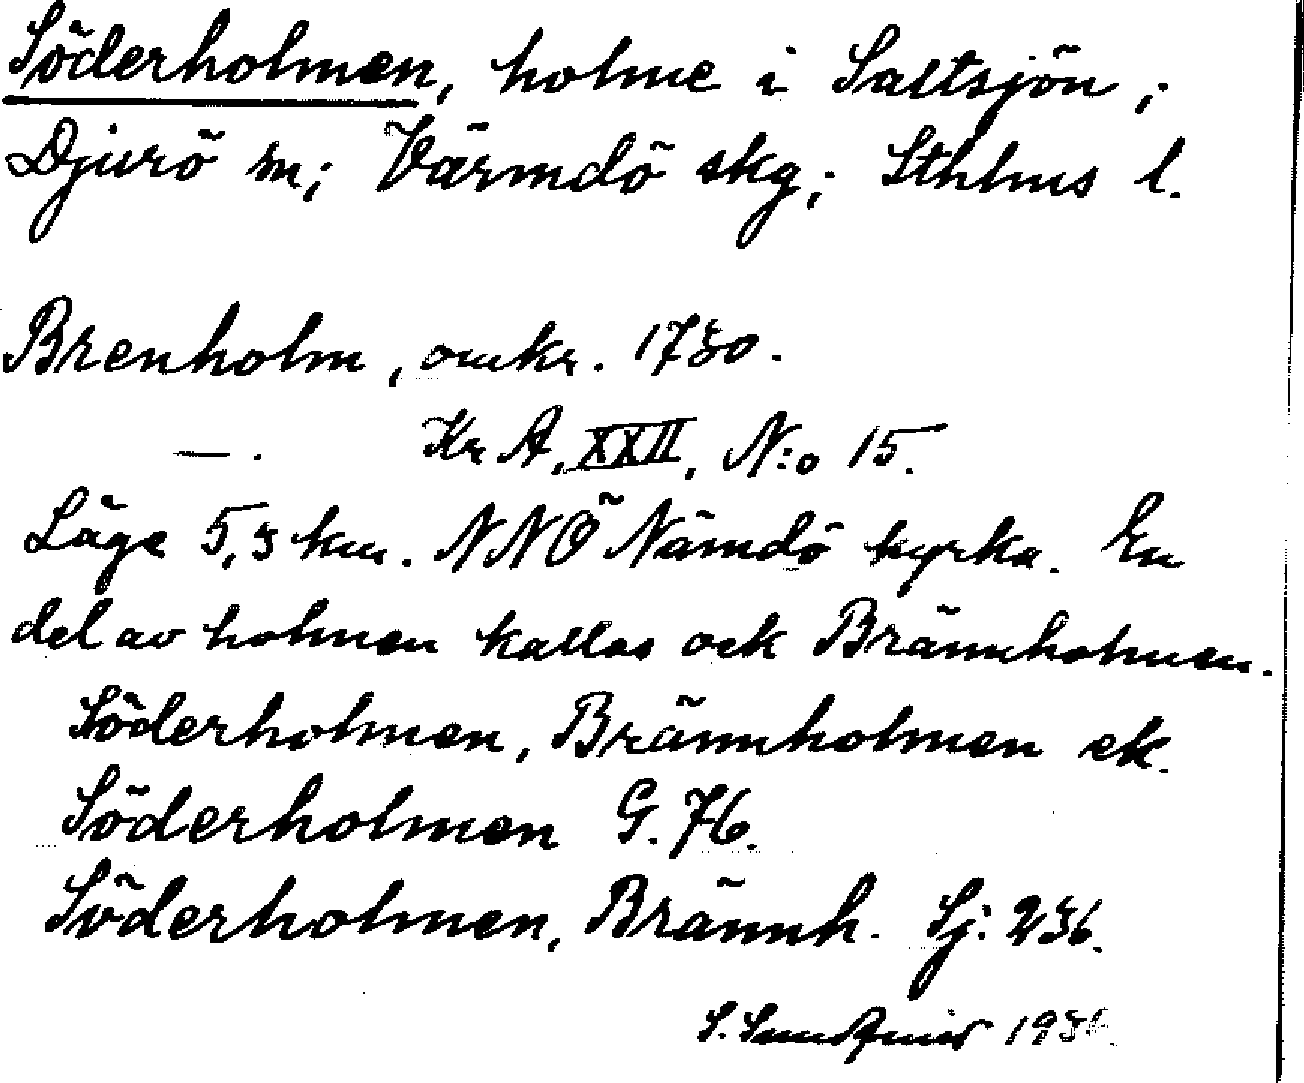 Söderholmen, holme i Saltsjön;
Djurö sn; Värmdö skg; Sthlms l.
Brenholm, omkr. 1730.
—. Kr A, XXII, N:o 15.
Läge 5,3 km. NNÖ Nämdö kyrka. En
del av holmen kallas ock Brännholmen.
Söderholmen, Brännholmen ek.
Söderholmen G. 76.
Söderholmen, Brännh. Sj: 236.
S. Sundqvist 193